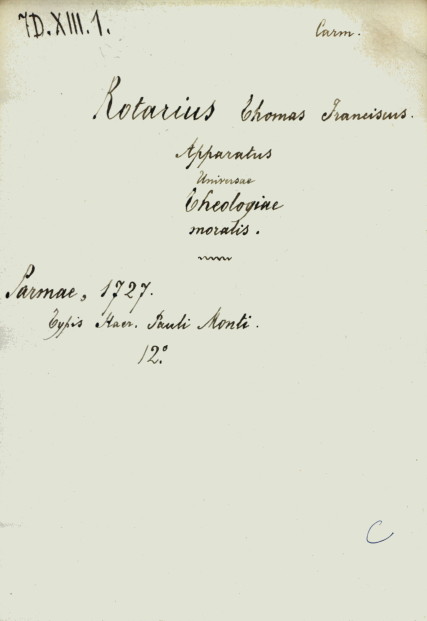 7D.XIII.1.
Carm.
Rotarius Thomas Franciscus.
Apparatus
Universae
Theologiae
moralis.
Parmae, 1727.
Typis Haer. Pauli Monti.
12°.
C